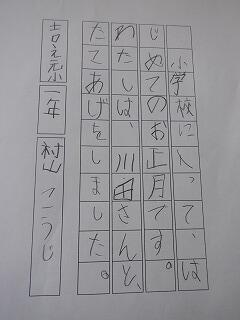 小学校に入って、は
じめてのお正月です。
わたしは、川田さんと、
たてあげをしました。
吉え元小 一年 村山 こうじ